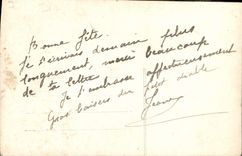 Bonne fête.
Je t'écrirais demain plus
longuement, merci beaucoup
de ta lettre
Je t'embrasse affectueusement
Gros baisers du petit diable